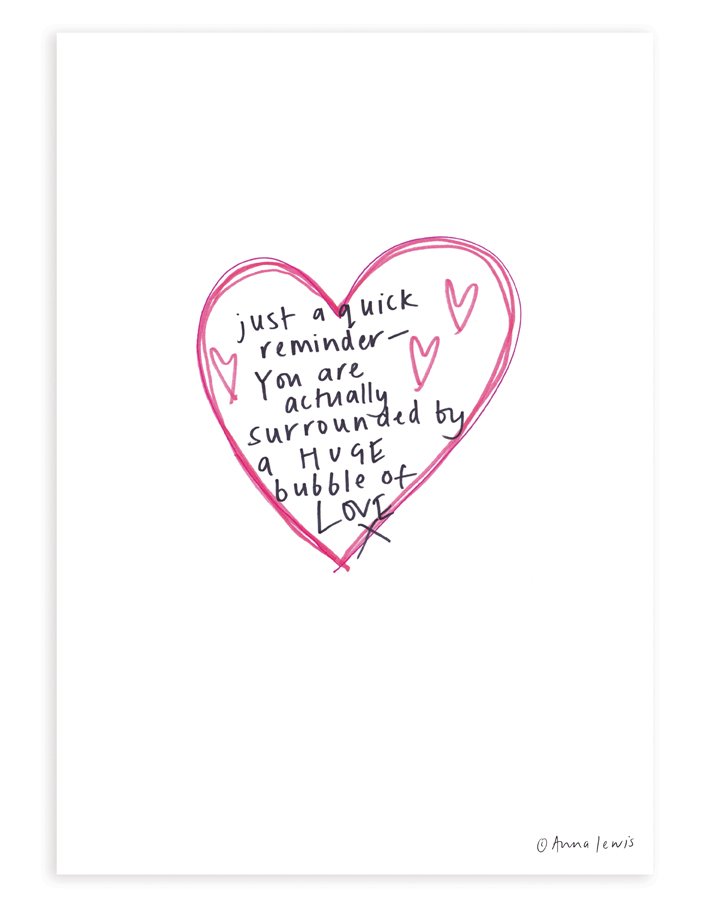 just a quick
reminder—
You are
actually
surrounded by
a HUGE
bubble of
LOVE
X
© Anna Lewis